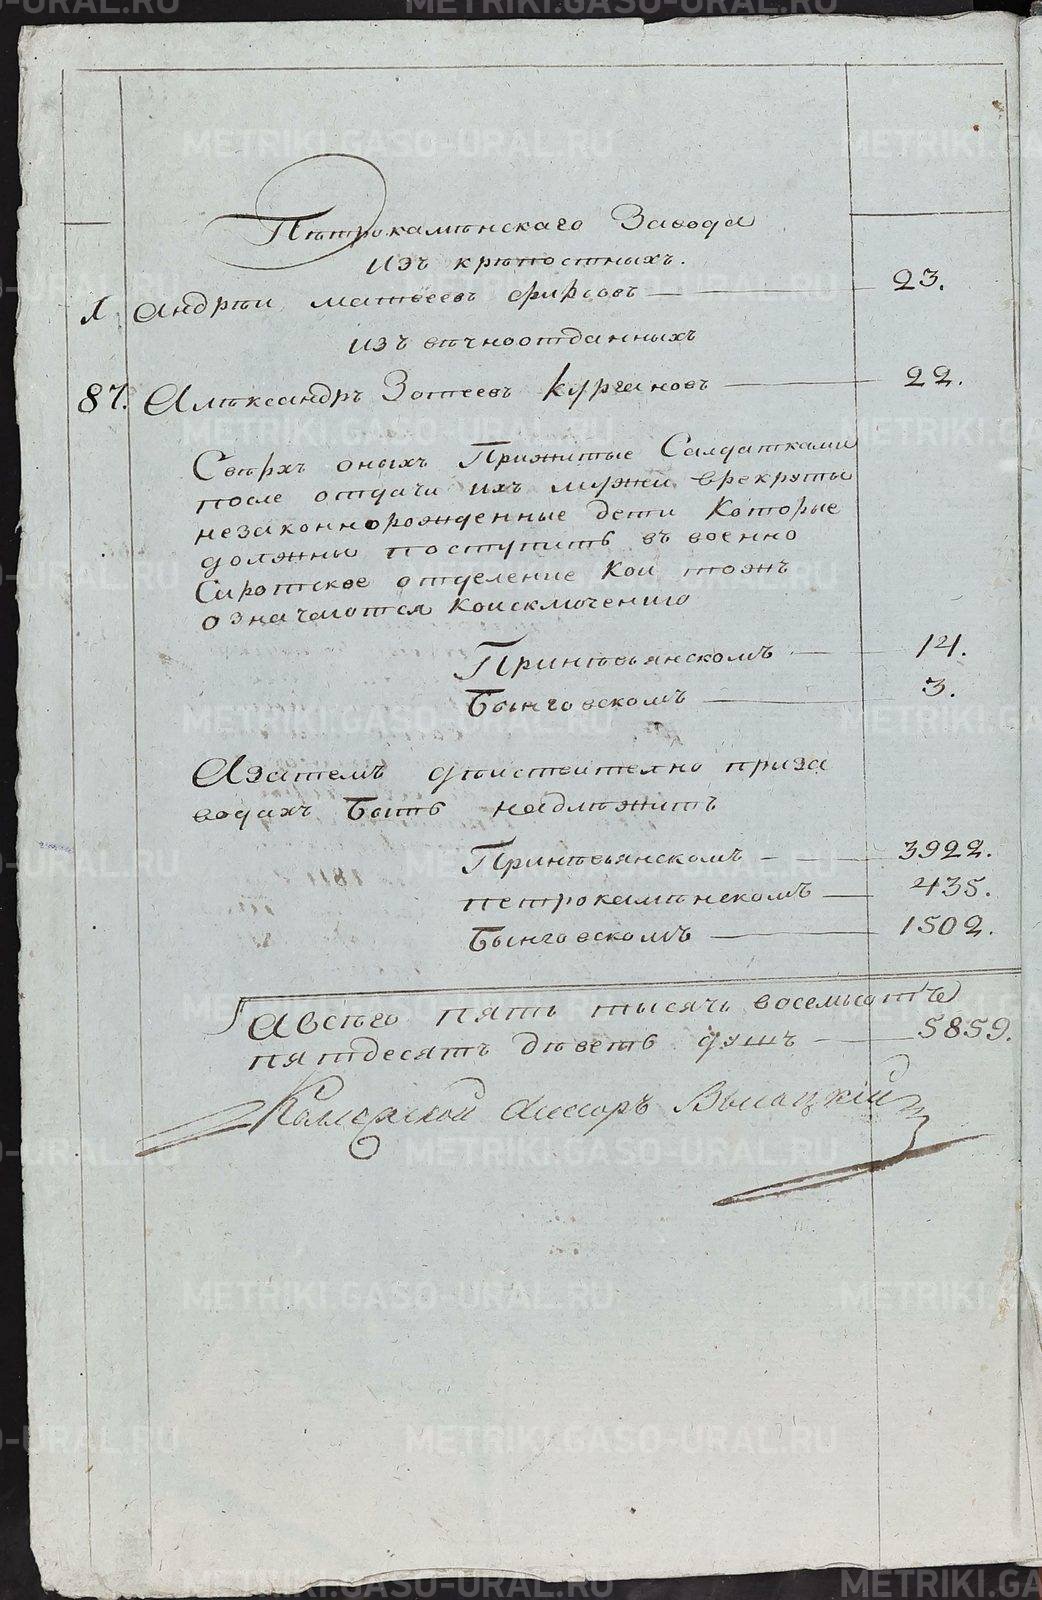 Пѣтрокамѣнскаго Завода
изъ крѣпостныхъ.
Андрѣи матвеевъ фирсовъ 23.
изъ вѣчноотданныхъ
87. Алѣксандръ Зотеевъ Кургановъ 22.
Свѣрхъ оныхъ Прижитые Салдатками
после отдачи ихъ мужеи врекруты
незаконнорожденные дети Которые
должны поступить въ военно
Сиротское отделение Кои тожъ
означаются Коисключению
Принѣвьянскомъ 14.
Бынговскомъ 3.
Азатемъ дѣиствително приза
водахъ Быть надлѣжитъ
Принѣвьянскомъ 3922.
петрокамѣнскомъ 435.
Бынговскомъ 1502.
Авсѣго пять тысячь восемьсотъ
пятдесятъ дѣветь душъ 5859.
Камерской Асессоръ
METRIKI.GASO-URAL.RU